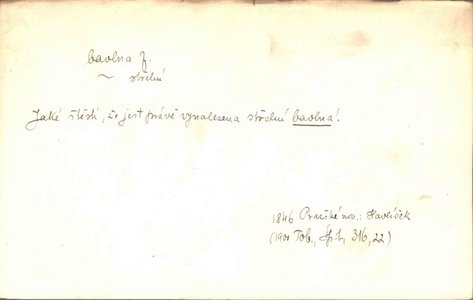 bavlna f.
~ střelní
Jaké štěstí, že jest právě vynalezena střelní bavlna!
1846 Pražské nov.: Havlíček
(1900 Tob., 316, 22)